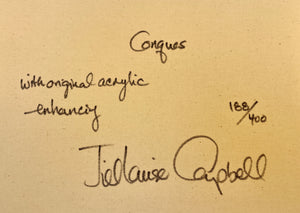 Conques
with original acrylic
enhancing
188/400
Campbell